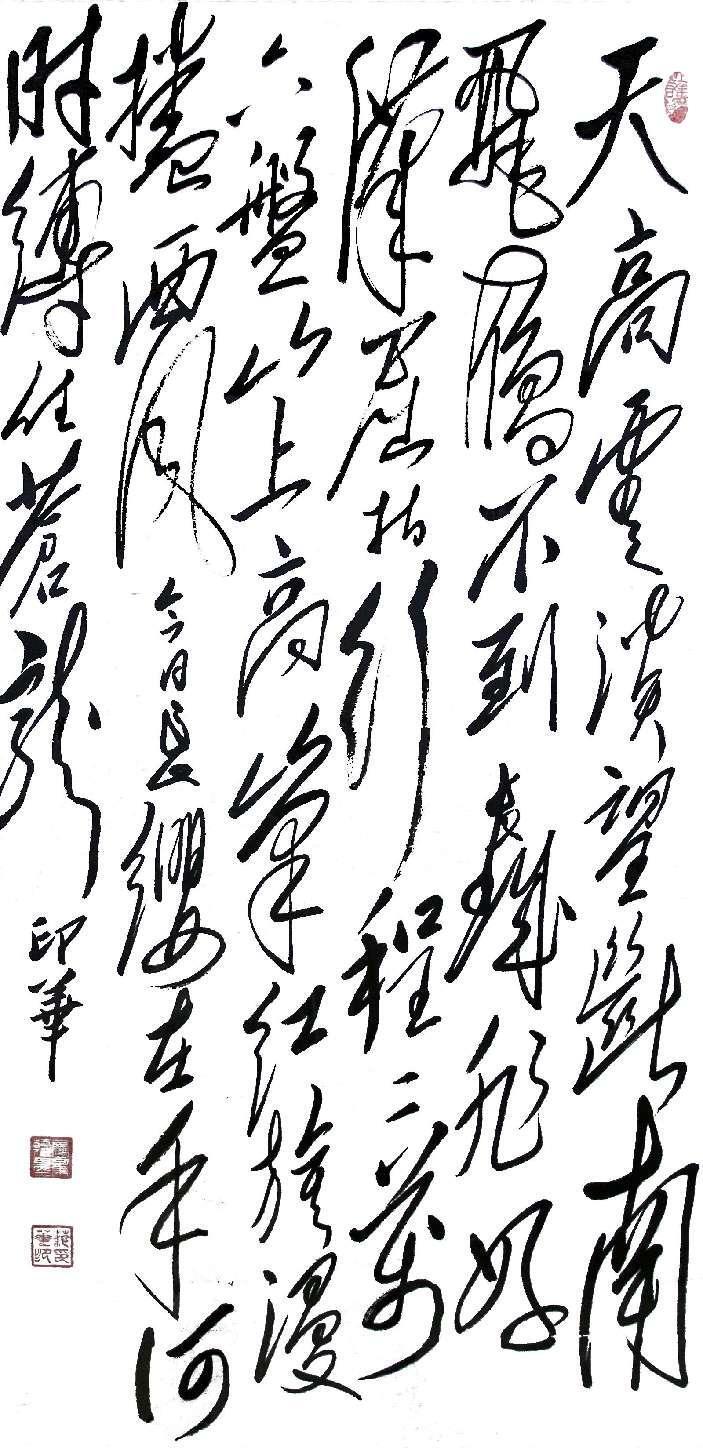 天高雲淡望斷南
飛雁不到長城非好
漢屈指行程二萬
六盤山上高峰紅旗漫
捲西風今日長纓在手何
時縛住蒼龍
印華